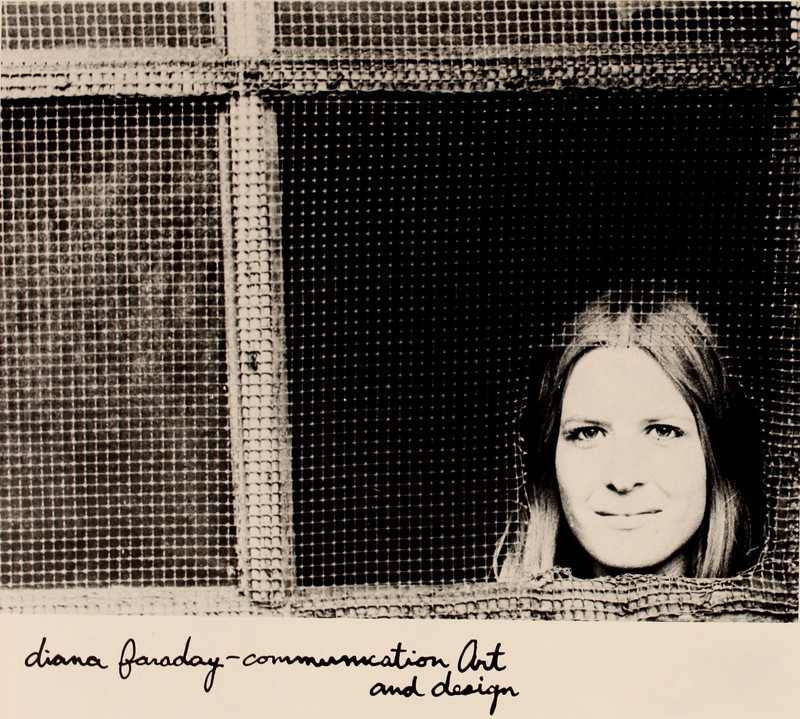 diana faraday-communication Art
and design